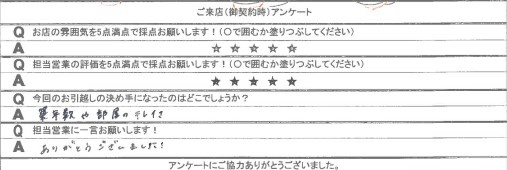 ご来店(御契約時)アンケート
Q お店の雰囲気を5点満点で採点お願いします!(〇で囲むか塗りつぶしてください)
A ☆ ☆ ☆ ☆ ☆
Q 担当営業の評価を5点満点で採点お願いします!(〇で囲むか塗りつぶしてください)
A ★ ★ ★ ★ ★
Q 今回のお引越しの決め手になったのはどこでしょうか?
A 築年数や部屋のキレイさ
Q 担当営業に一言お願いします!
A ありがとうございました!
アンケートにご協力ありがとうございました。